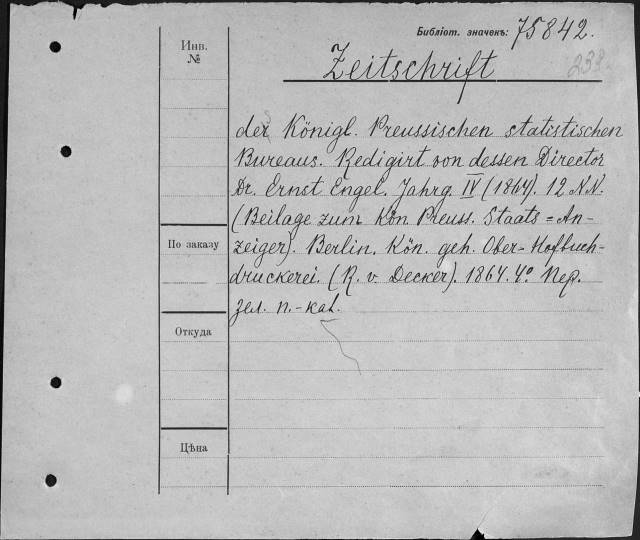 Библіот. значекъ: 75842.
Инв. №
Zeitschrift
238.
des Königl. Preussischen statistischen
Bureaus. Redigirt von dessen Director
Dr. Ernst Engel. Jahrg. IV (1864). 12 N.N.
(Beilage zum Kön. Preuss. Staats=An-
zeiger). Berlin. Kön. geh. Ober-Hofbuch-
По заказу
druckerei. (R. v. Decker). 1864. 4º Пер.
зел. п.-кал.
Откуда
Цѣна